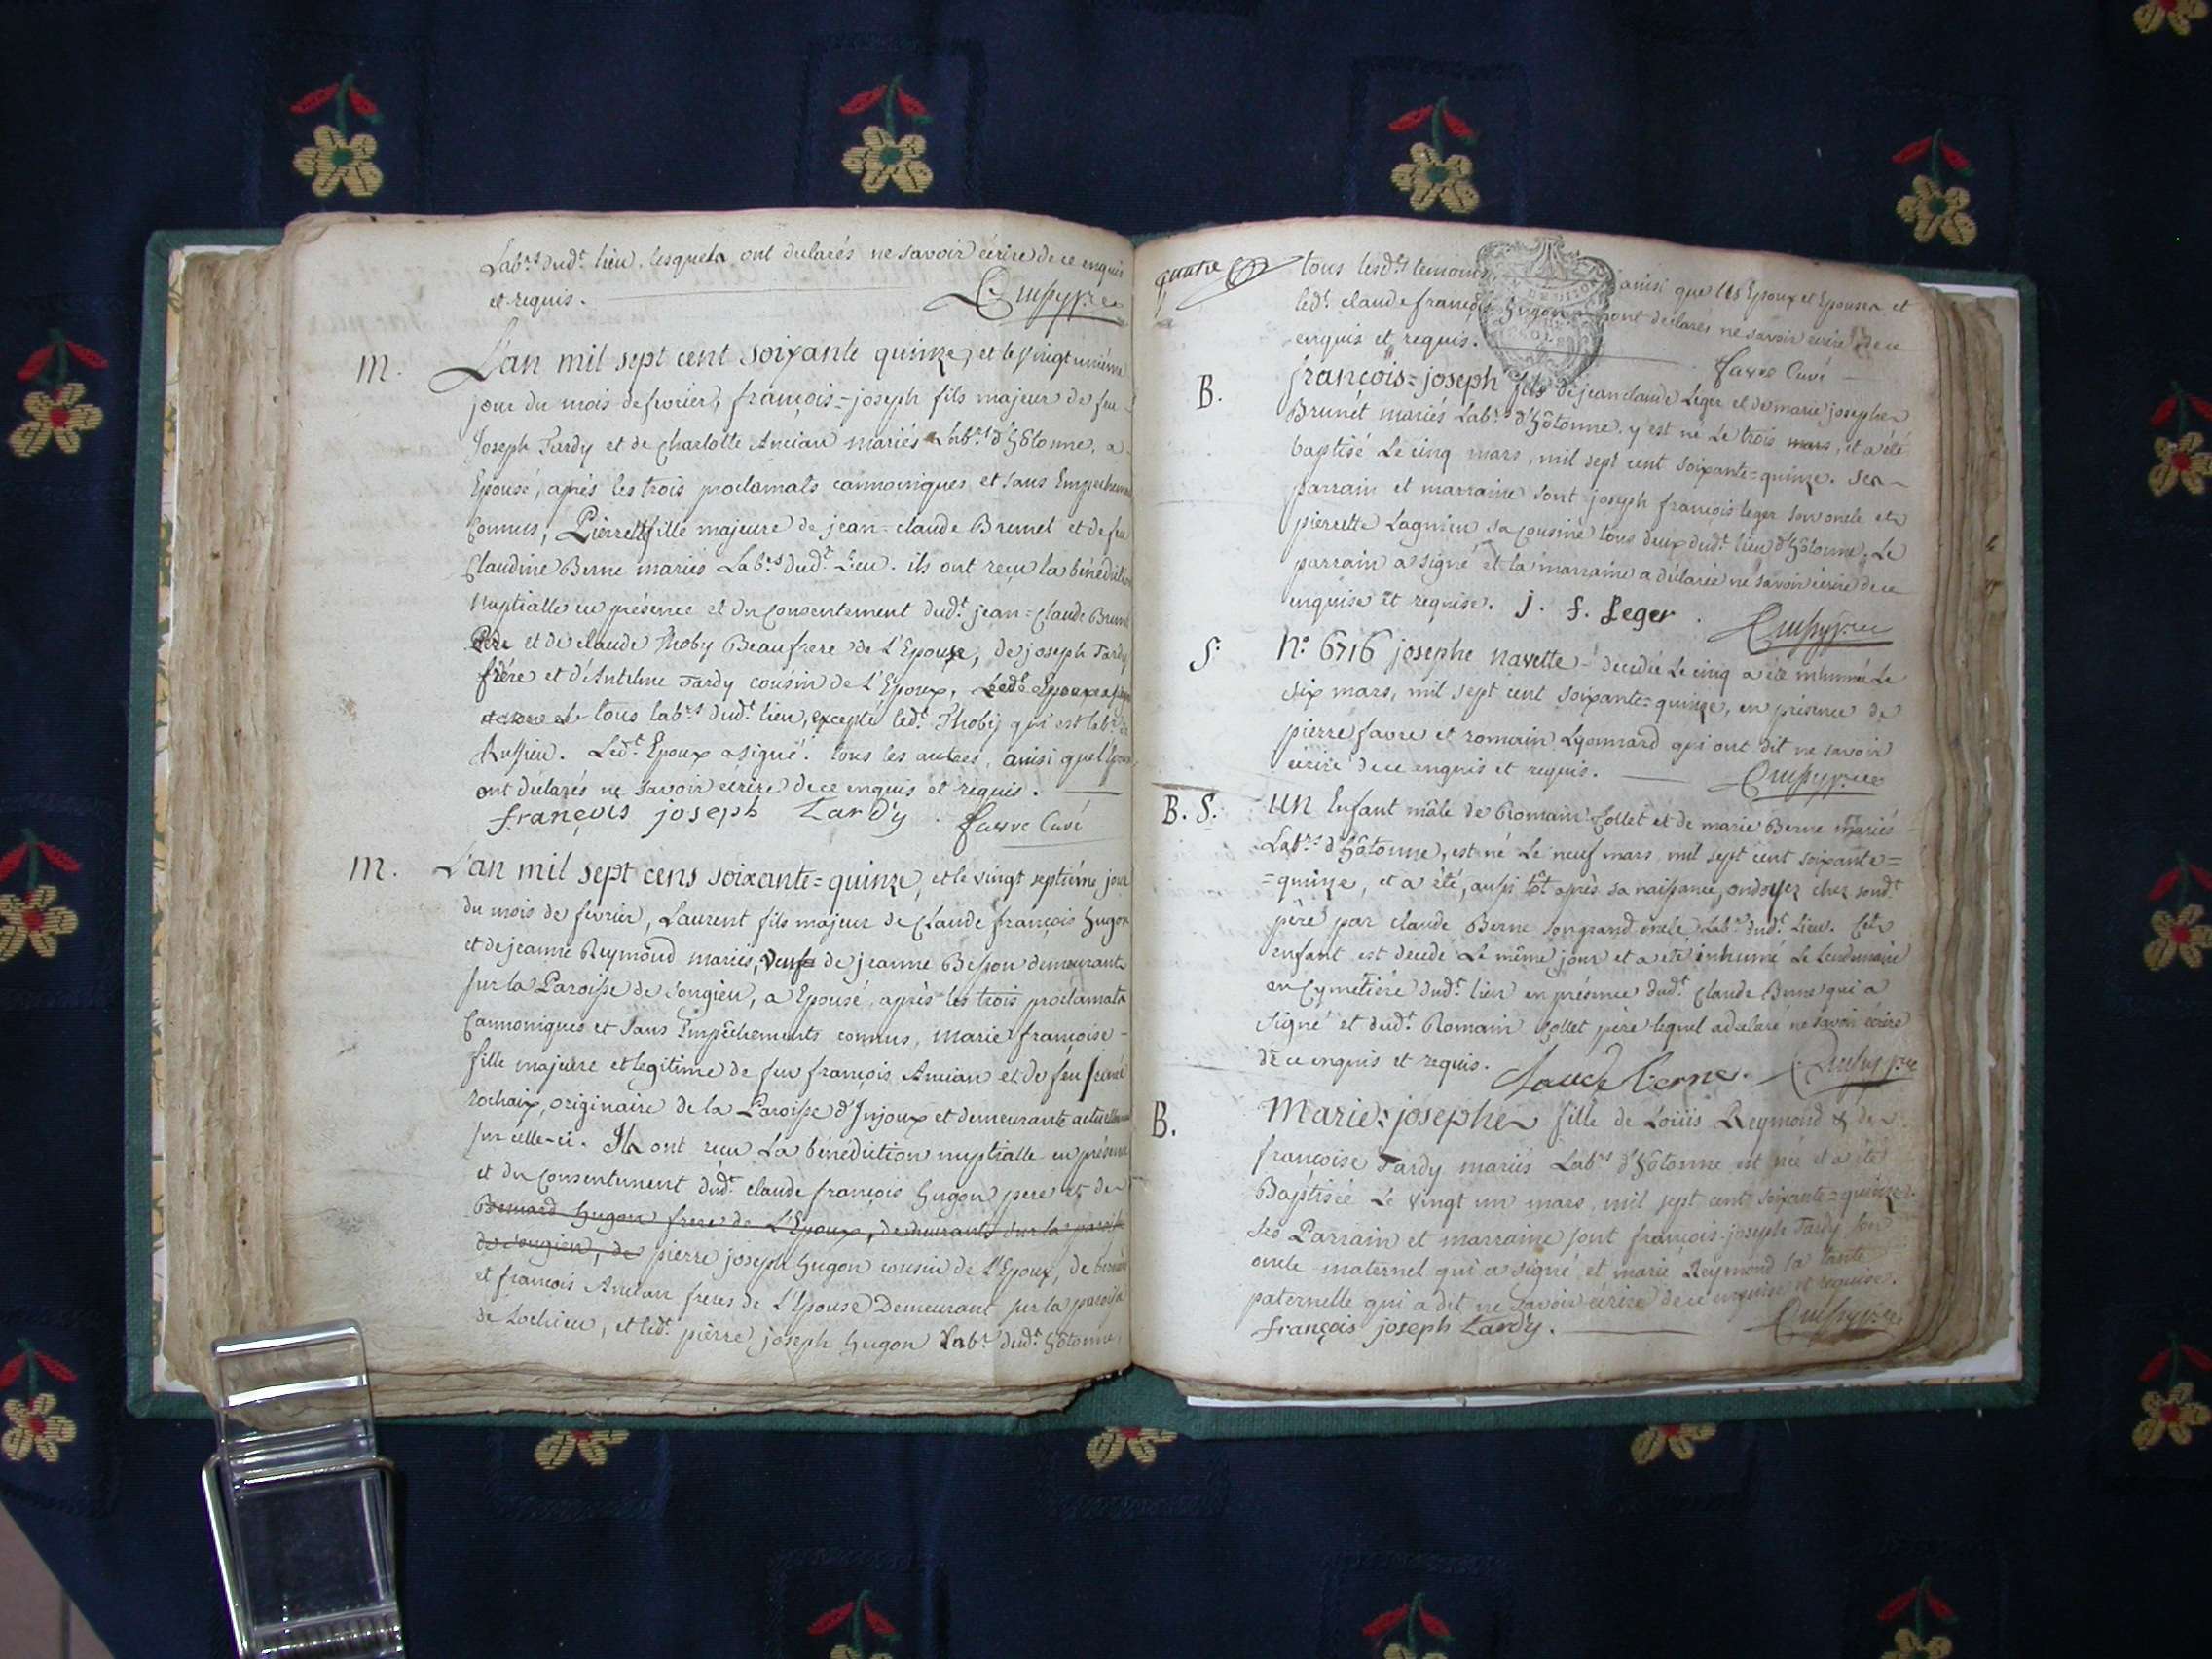 Lab.rs dud.t lieu. lesquels ont déclarés ne savoir écrire de ce enquis
et requis.
M.
L'an mil sept cent soixante quinze, et le vingt unième
jour du mois de fevrier, françois=joseph fils majeur de feu
Joseph Tardy et de Charlotte Ancian mariés Lab.rs d'hôtonne, a
Epousé, après les trois proclamats cannoniques et sans Empechemens
Connus, Pierrette fille majeure de jean=claude Brunet et de feu
Claudine Berne mariés Lab.rs dud.t Lieu. ils ont reçu la bénédiction
Nuptialle en présence et du Consentement dud.t jean=Claude Brunet
Pere et de claude Thoby Beaufrere de L'Epouse, de joseph Tardy
frére et d'Antelme Tardy cousin de l'Epoux,
tous lab.rs dud.t lieu, excepté led.t Thoby qui est lab.r de
Ruffieu. Led.t Epoux a signé. tous les autres, ainsi que l'Epouse
ont déclarés ne savoir écrire de ce enquis et requis.
françois joseph tardy. favre Curé
M.
L'an mil sept cens soixante=quinze, et le vingt septiéme jour
du mois de fevrier, Laurent fils majeur de Claude françois hugon
et de jeanne Reymond mariés, veuf de jeanne Besson demeurant
sur la Paroisse de songieu, a Epousé, après les trois proclamats
Cannoniques et sans Empêchements connus, marie françoise
fille majeure et legitime de feu françois Ancian et de feu
rochaix, originaire de la Paroisse d'Injoux et demeurante actuellement
sur celle-ci. Ils ont reçu La bénédiction nuptialle en présence
et du Consentement dud.t claude françois hugon pere et de
Bernard hugon frere de L'Epoux, demeurants sur la paroisse
de songieu, de pierre joseph hugon cousin de l'Epoux, de
et françois Ancian freres de L'Epouse Demeurant sur la paroisse
de Lochieu, et led.t pierre joseph hugon Lab.r dud.t hôtonne,
quatre
tous lesd.ts temoins, ainsi que les Epoux et Epouse et
led.t claude françois hugon ont déclarés ne savoir écrire de ce
enquis et requis.
favre Curé
B.
françois=joseph fils de jean claude Leger et de marie josephe
Brunét mariés Lab.rs d'hôtonne. y est né Le trois mars, et a été
baptisé Le cinq mars, mil sept cent soixante=quinze. ses
parrain et marraine sont joseph françois leger son oncle et
pierrette Lagnieu sa cousine tous deux dud.t lieu d'hôtonne. Le
parrain a signé et la marraine a déclarée ne savoir écrire de ce
enquise et requise. j. f. Leger.
S.
N.o 6716 josephe Navette decedée Le cinq a été inhumée Le
six mars, mil sept cent soixante=quinze, en présence de
pierre favre et romain Lyonnard qui ont dit ne savoir
écrire de ce enquis et requis.
B. S.
UN Enfant mâle de Romain Collet et de marie Berne mariés
Lab.rs d'hôtonne, est né Le neuf mars mil sept cent soixante=
=quinze, et a été, aussi tôt après sa naissance, ondoyez chez sond.t
père par claude Berne son grand oncle Lab.r dud.t Lieu. Cet
enfant est decédé Le même jour et a été inhumé Le Lendemain
au Cymetière dud.t lieu en présence dud.t Claude Berne qui a
signé et dud.t Romain Collet père lequel a déclaré ne savoir écrire
de ce enquis et requis. Claude berne.
B.
Marie=josephe fille de Loüis Reymond & de
françoise Tardy mariés Lab.rs d'hôtonne est née et a été
Baptisée Le vingt un mars, mil sept cent soixante=quinze.
ses Parrain et marraine sont françois-joseph Tardy son
oncle maternel qui a signé et marie Reymond sa tante
paternelle qui a dit ne savoir écrire de ce enquise et requise.
françois joseph tardy.